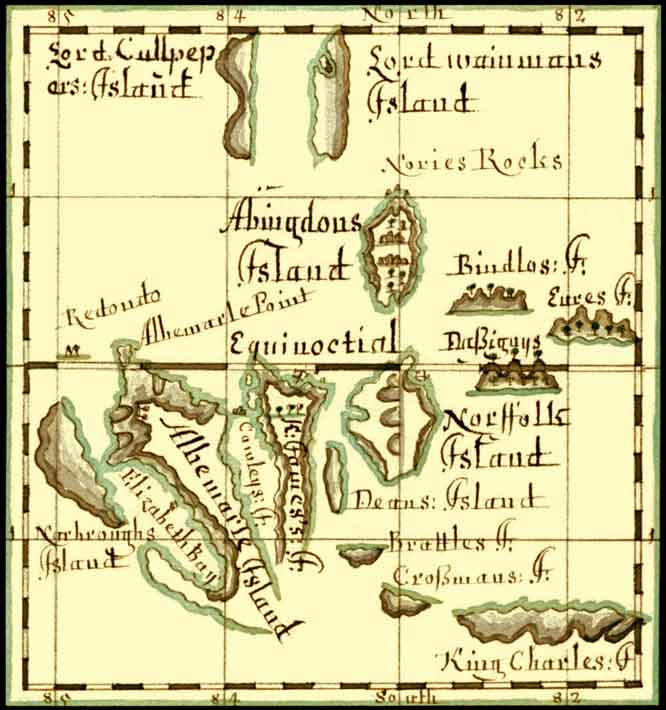 85
84
North
82
Lord Cullpep
ers: Island
Lord wainmans
Island
Nories Rocks
1
1
Abingdons
Island
Bindlos: I.
Eures I.
Redondo
Albemarle Point
Equinoctial
Daßiguys
Norffolk
Island
Albemarle Island
Cowleys: I.
K: James's: I.
Elizabeth Bay
Deans: Island
Narbroughs
Island
1
1
Brattles I.
Croßmans: I.
King Charles: I
85
84
South
82